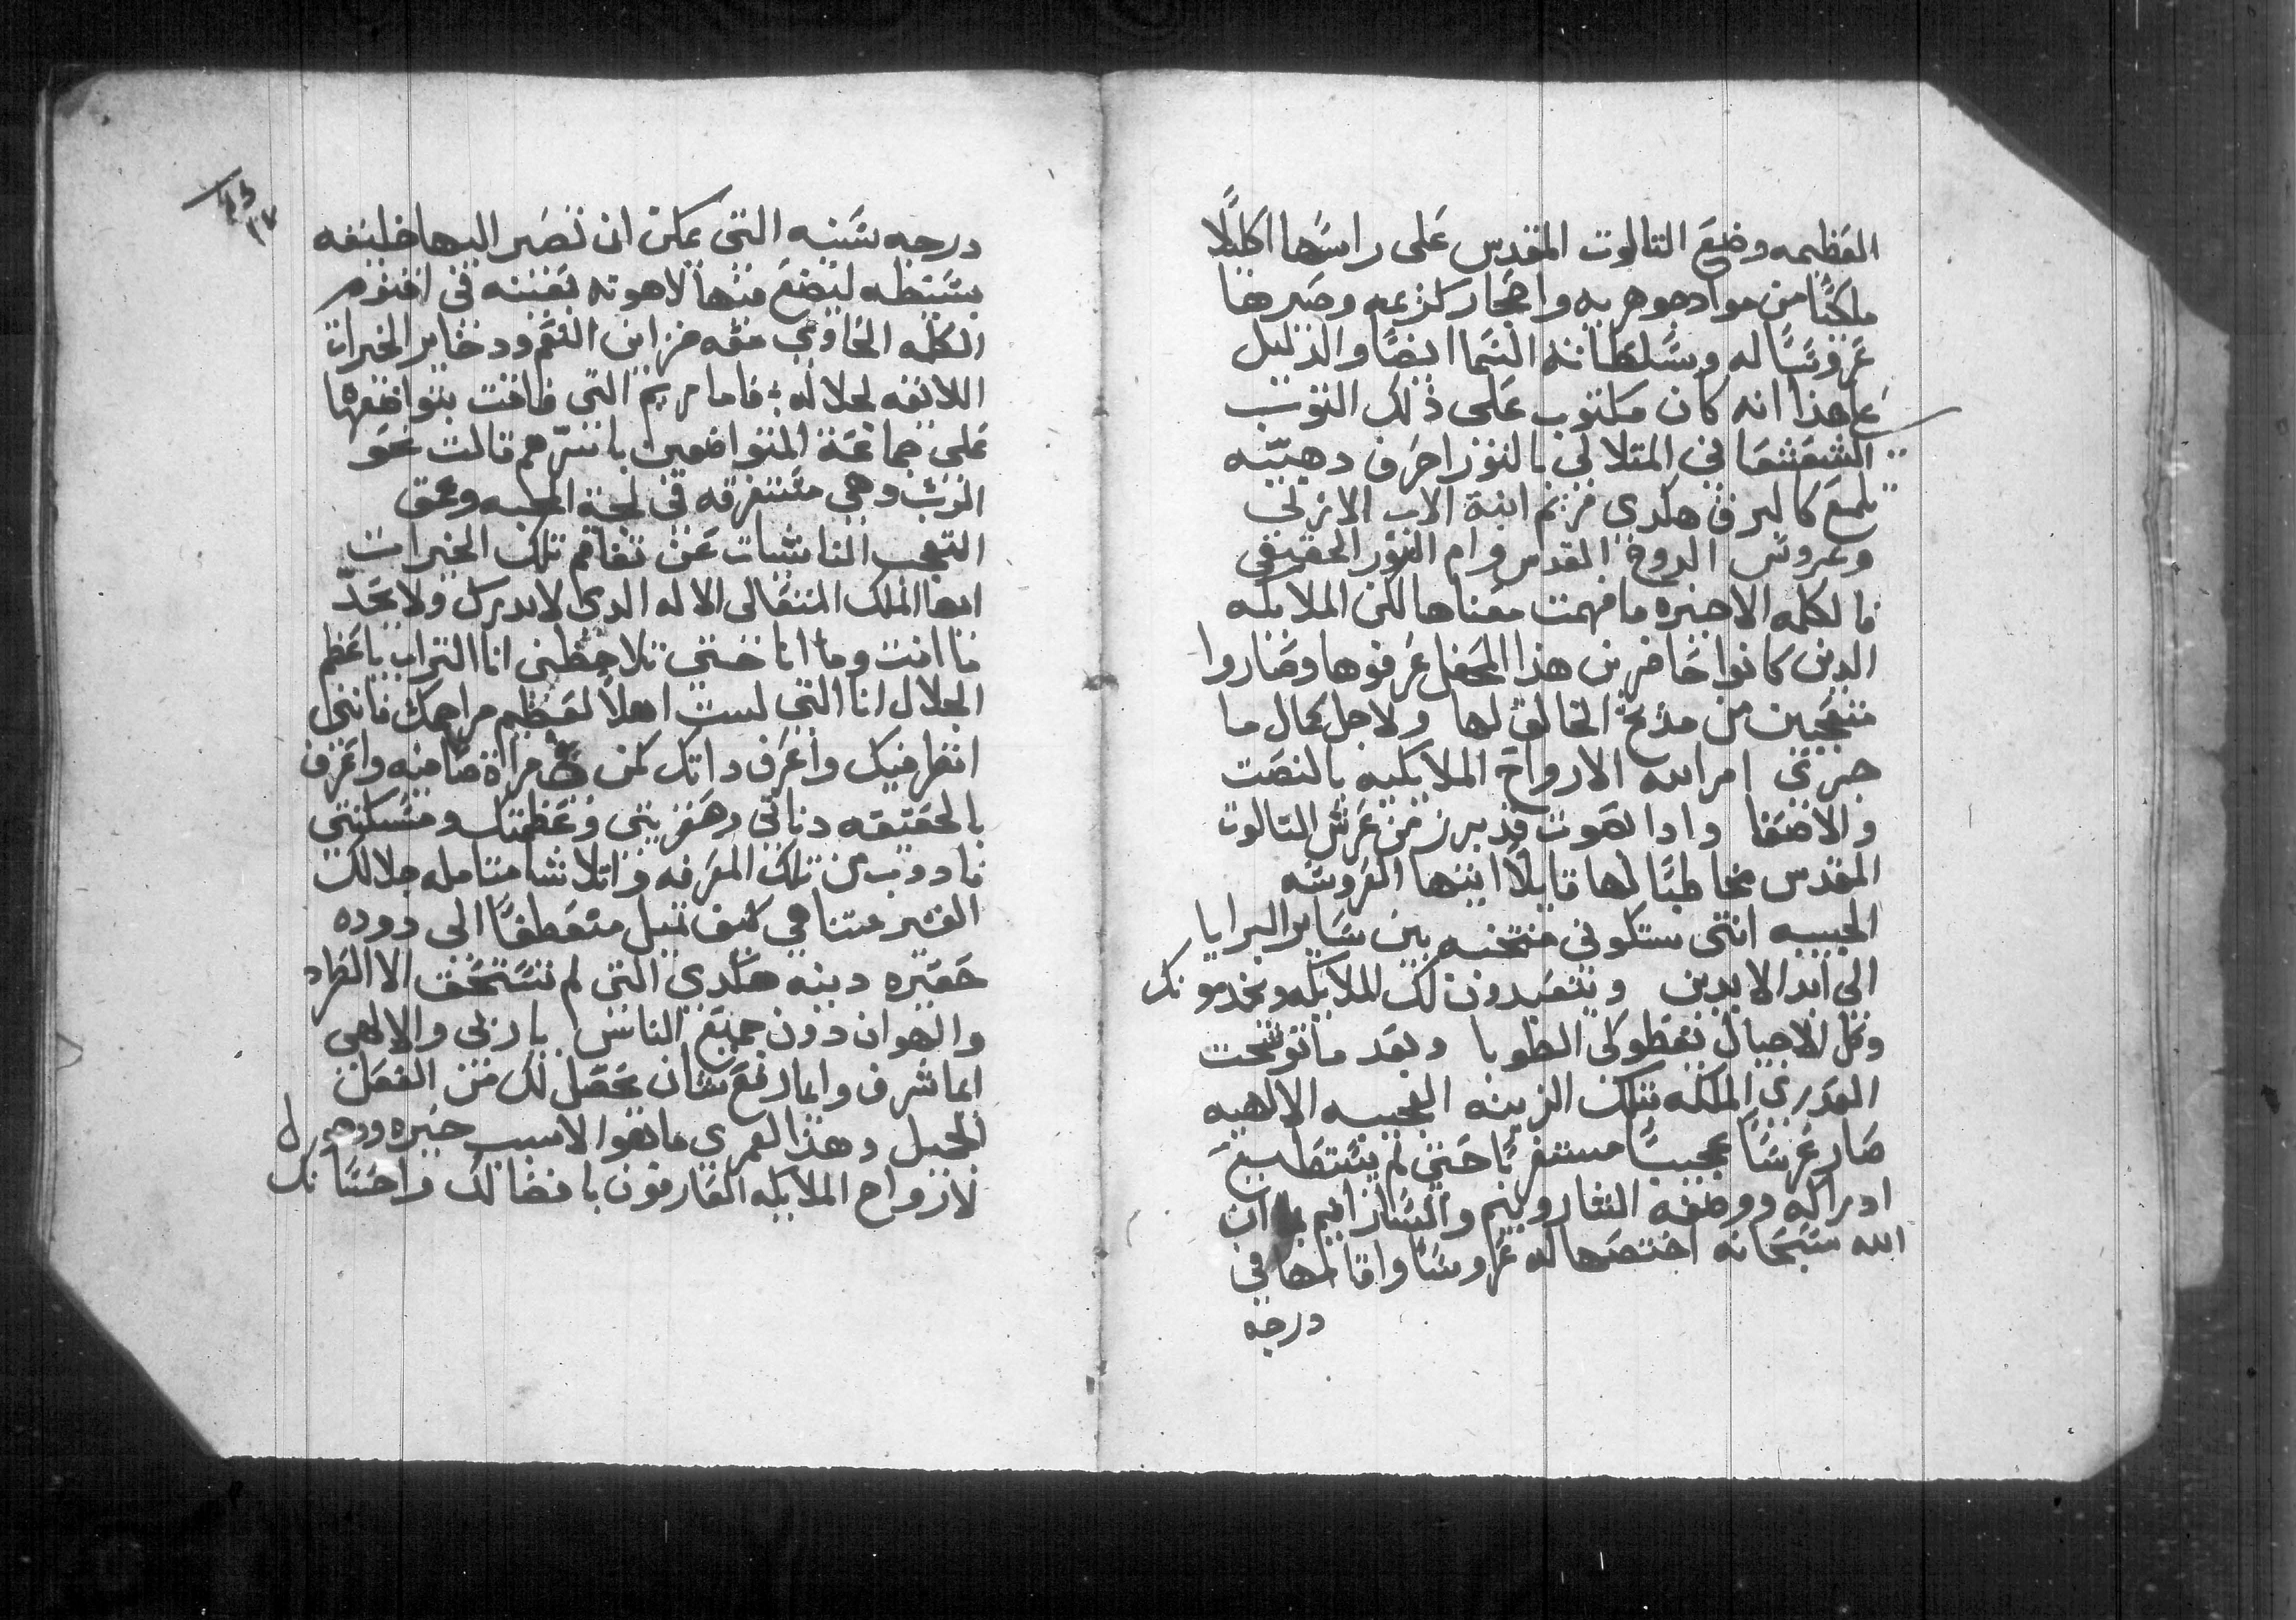 العظيمه وضع التالوت المقدس على راسها اكليلًا
ملكيًا من مواد جوهريه واحجار كريمه وصيرها
عروسًا له وسلطانة السما ايضًا والدليل
على هذا انه كان مكتوب على ذلك التوب
الشعشعاني المتلالي بالنور احرف دهبيّه
تلمع كالبرق هكدي مريم ابنة الاب الازلي
وعروس الروح المقدس وام النور الحقيقي
فالكلمه الاخيره ما فهمت معناها لكن الملايكه
الدين كانوا حاضرين هذا المحفل عرفوها وصاروا
متعجبين من مديح الخالق لها ولاجل كمال ما
جري امر الله الارواح الملايكيه بالنصت
والاصغا وادا بصوت قد برز من عرش التالوت
المقدس مخاطبًا لها قايلًا ايتها العروسه
الحبيبه انتي ستكوني منتخبه بين ساير البرايا
الي ابد الابدين ويتعبدون لك الملايكه ويخدمونك
وكل الاجيال تعطوكي الطوبا وبعد ما توشحت
العدري الملكه بتلك الزينه العجيبه الالهيه
صار عرسًا عجيبًا مستغربًا حتي لم يستطيع
ادراكه ووصفه الشاروبيم والسارافيم بما ان
الله سبحانه اختصها له عروسًا واقامها في
درجه
٢٧
درجه سنيه التي يمكن ان تصير اليها خليقه
بسيطه ليضع فيها لاهوته بعينه في اقنوم
الكلمه الحاوي معه خزاين النعم ودخاير الخيرات
اللايقه لجلاله ؛ فاما مريم التي فاقت بتواضعها
على جماعة المتواضعين باسرّهم قالت نحو
الرب وهي مستغرقه في لجة المحبه وعمق
التعجب الناشيات عن تفاقم تلك الخيرات
ايها الملك المتعالي الاله الدي لا يدرك ولا يحدّ
ما انت وما انا حتي تلاحظني انا التراب يا عظيم
الجلال انا التي لست اهلًا لعظيم مراحمك فانني
انظر فيك واعرف داتك كمن في مراة صافيه واعرف
بالحقيقه دناتي وحقريتي وعظمتك ومسكنتي
فادوب من تلك المعرفه واتلاشا متامله جلالك
الغير متناهي كيف تميل متعطفًا الي دوده
حقيره دنيه هكدي التي لم تستحق الا الطراد
والهوان دون جميع الناس يا ربي والالهي
ايما شرف وايما رفع شان يحصل لك من الفعل
الجميل وهذا لعمري ما هوا الا سبب حيره ودهول
لارواح الملايكه العارفون بافضالك واحسانك